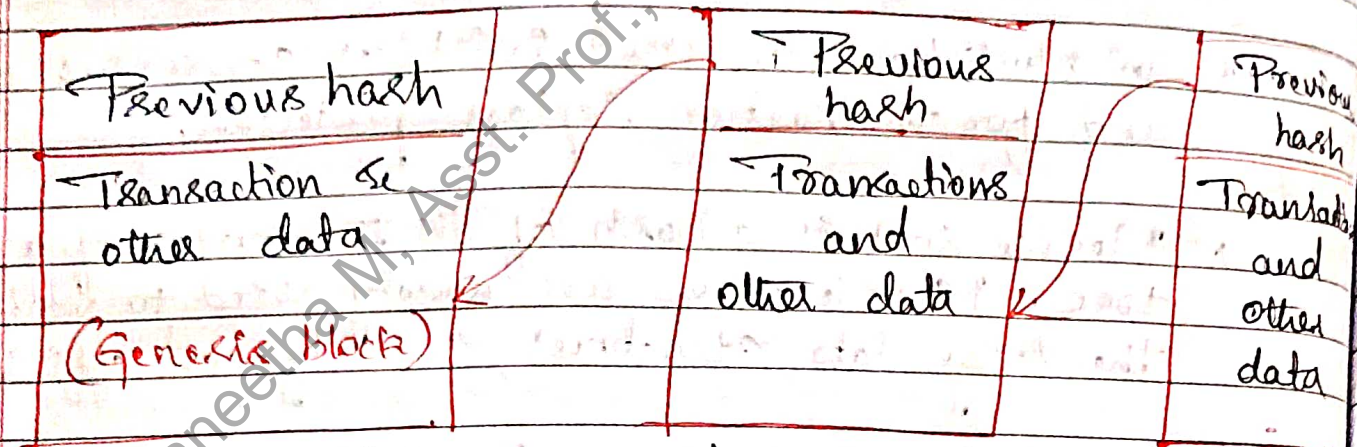 Previous hash
Transaction &
other data
(Genesis block)
Previous
hash
Transactions
and
other data
Previou
hash
Transacti
and
other
data
neetha M, Asst. Prof.,